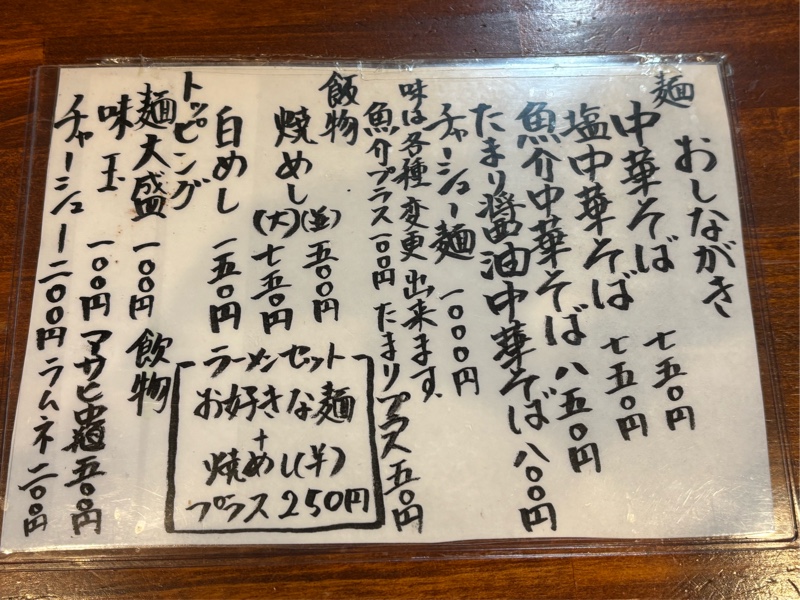 おしながき
麺
中華そば 七五〇円
塩中華そば 七五〇円
魚介中華そば 八五〇円
たまり醤油中華そば 八〇〇円
チャーシュー麺 一〇〇〇円
味は各種変更出来ます。
魚介プラス一〇〇円 たまりプラス五〇円
飯物
焼めし(並)五〇〇円
(大)七五〇円
白めし 一五〇円
ラーメンセット
お好きな麺
+
焼めし(半)
プラス250円
トッピング
麺大盛 一〇〇円
味玉 一〇〇円
チャーシュー二〇〇円
飲物
アサヒ中瓶五〇〇円
ラムネ二〇〇円